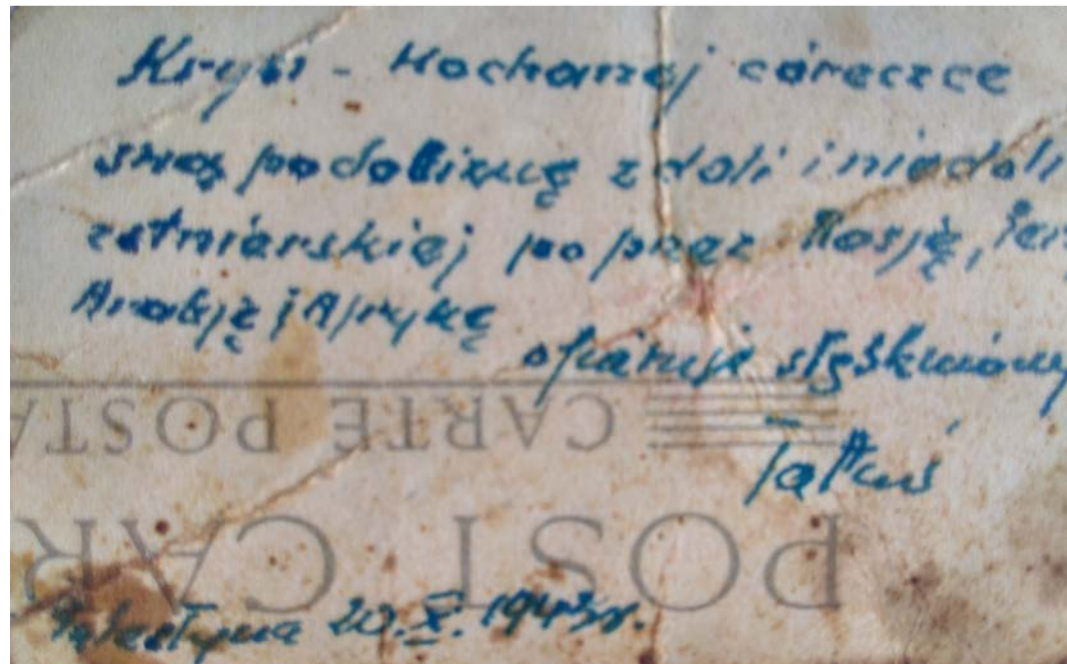 Krysi - Kochanej córeczce
swą podobiznę z doli i niedoli
żołnierskiej poprzez Rosję,
Arabję i Afrykę
ofiaruje
Tatuś
CARTE POSTA
POST CAR
Palestyna 20.X.1943r.